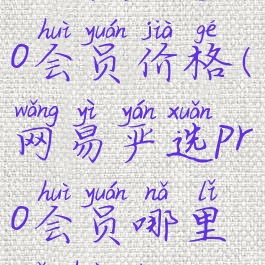 huì yuán jià gé
o会员价格(
wǎng yì yán xuǎn
网易严选pr
huì yuán nǎ lǐ
o会员哪里